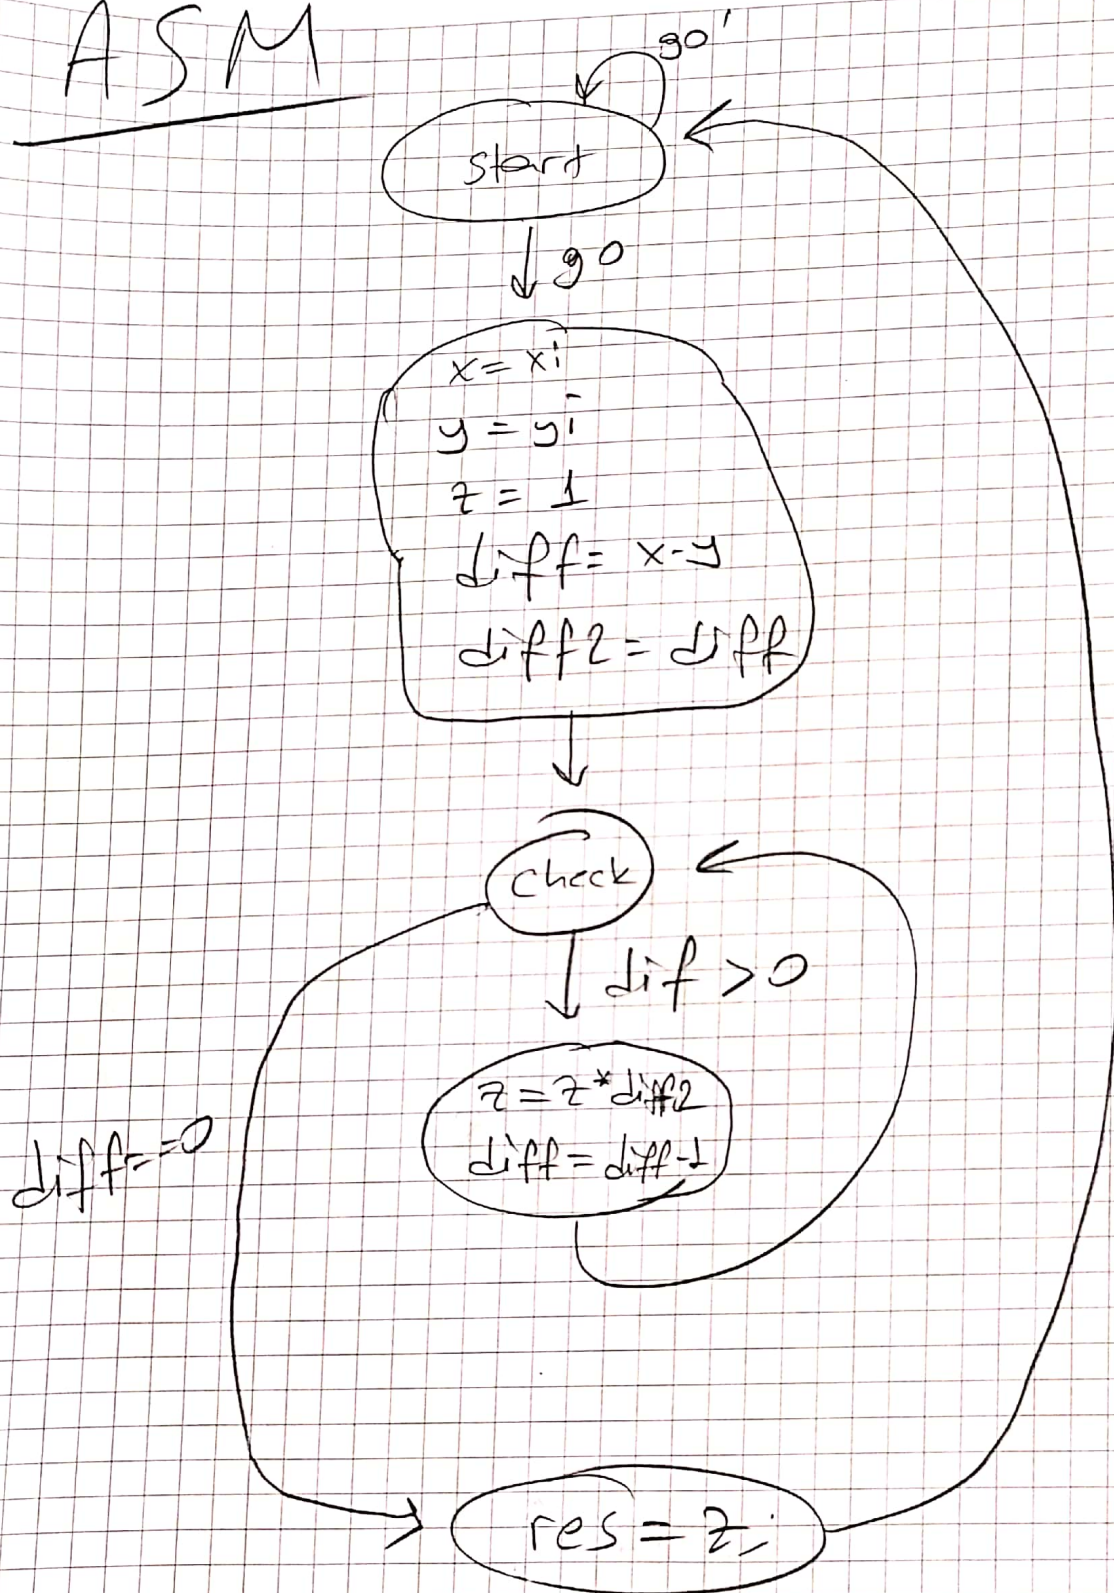 ASM
go'
start
go
x = xi
y = yi
z = 1
diff = x-y
diff2 = diff
check
dif > 0
z = z*diff2
diff = diff-1
diff==0
res = z;